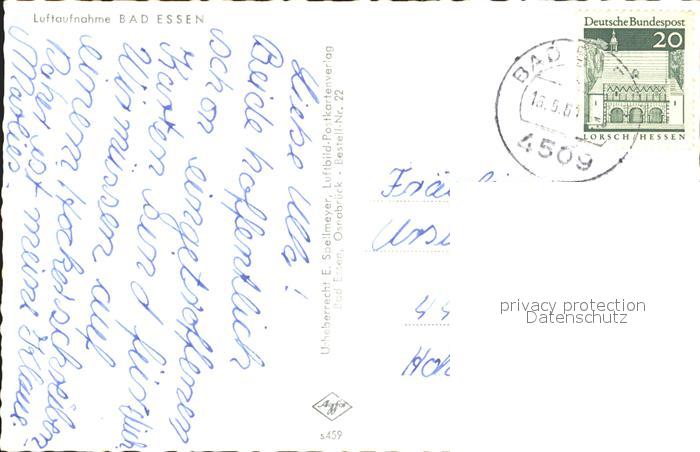 Luftaufnahme BAD ESSEN
Liebe Ulla!
Beide hoffentlich
schon eingetroffenen
Karten sind für Dich.
Wir müssen auf
einem Hocker schreiben
Marlies
Urheberrecht E. Spellmeyer, Luftbild-Postkartenverlag
Bad Essen, Osnabrück - Bestell-Nr. 22
Agfa
s459
Deutsche Bundespost
20
LORSCH/HESSEN
BAD
4509
Fräu
Urs
44
privacy protection
Datenschutz